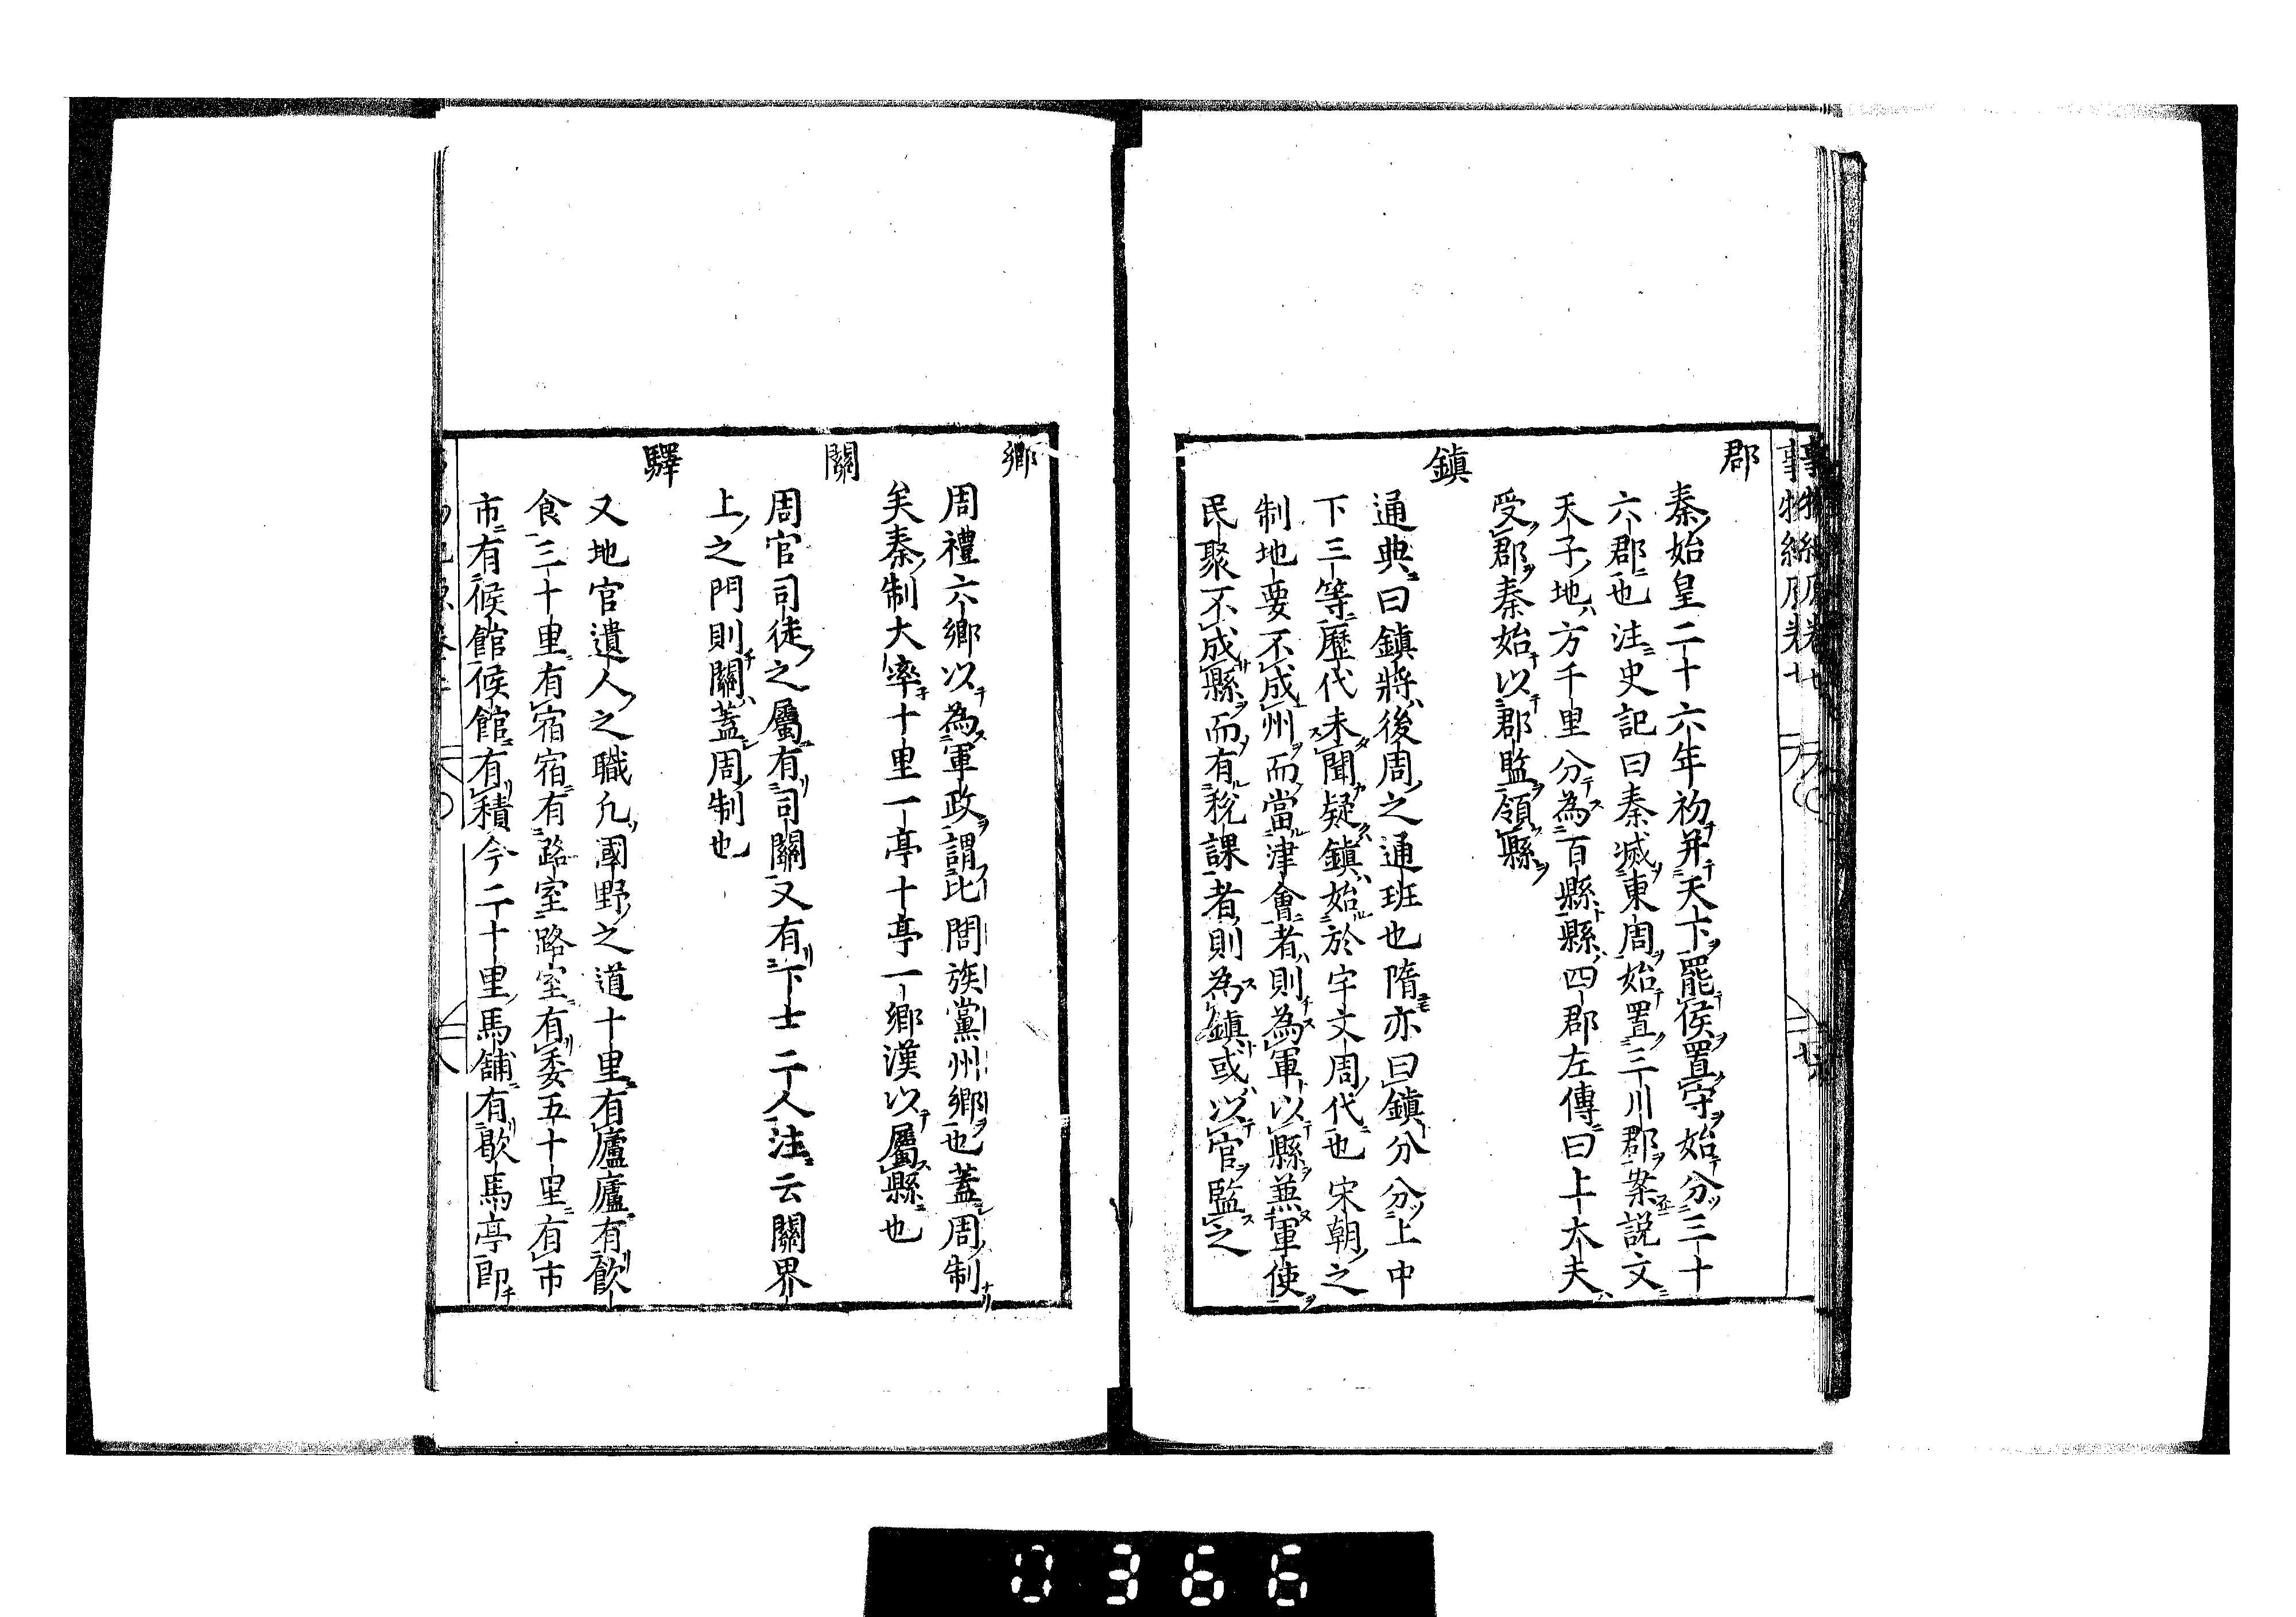 郡
秦始皇二十六年初并天下罷侯置守始分三十
六郡也注史記曰秦滅東周始置三川郡案説文
天子地方千里分為百縣縣四郡左傳曰上大夫
受郡秦始以郡監領縣
鎮
通典曰鎮將後周之通班也隋亦曰鎮分分上中
下三等歷代未聞疑鎮始於宇文周代也宋朝之
制地要不成州而當津會者則為軍以縣兼軍使
民聚不成縣而有稅課者則為鎮或以官監之
鄉
周禮六鄉以為軍政謂比閭族黨州鄉也蓋周制
矣秦制大率十里一亭十亭一鄉漢以屬縣也
關
周官司徒之屬有司關又有下士二人注云關界
上之門則關蓋周制也
驛
又地官遺人之職凡國野之道十里有廬廬有飲
食三十里有宿宿有路室路室有委五十里有市
市有候館候館有積今二十里馬舖有歇馬亭即
0366